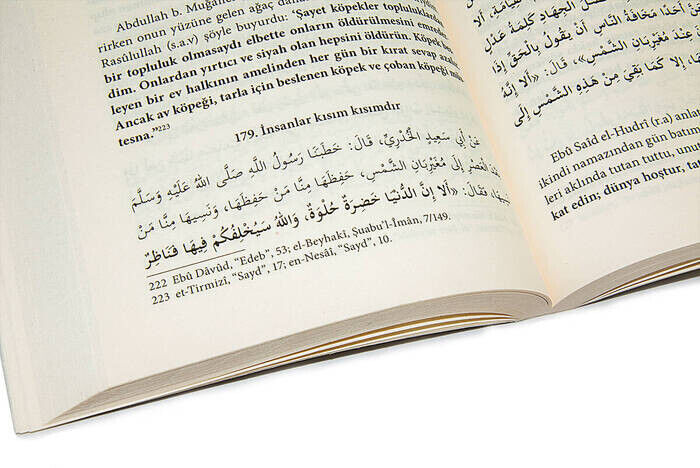 Abdullah b. Muğaffel
rirken onun yüzüne gelen ağaç da
Rasûlullah (s.a.v) şöyle buyurdu: "Şayet köpekler topluluklarda
bir topluluk olmasaydı elbette onların öldürülmesini emreder
dim. Onlardan yırtıcı ve siyah olan hepsini öldürün. Köpek b
leyen bir ev halkının amelinden her gün bir kırat sevap azal
Ancak av köpeği, tarla için beslenen köpek ve çoban köpeği m
tesna."223
179. İnsanlar kısım kısımdır
عَنْ أَبِي سَعِيدٍ الْخُدْرِيِّ، قَالَ: خَطَبَنَا رَسُولُ اللَّهِ صَلَّى اللَّهُ عَلَيْهِ وَسَلَّمَ
الْعَصْرِ إِلَى مُغَيْرِبَانِ الشَّمْسِ، حَفِظَهَا مِنَّا مَنْ حَفِظَهَا، وَنَسِيَهَا مِنَّا مَنْ
فَقَالَ: «أَلَا إِنَّ الدُّنْيَا خَضِرَةٌ حُلْوَةٌ، وَاللَّهُ سَيُخْلِفُكُمْ فِيهَا فَنَاظِرٌ
222 Ebû Dâvûd, "Edeb", 53; el-Beyhakî, Şuabu'l-İmân, 7/149.
223 et-Tirmizî, "Sayd", 17; en-Nesâî, "Sayd", 10.
أَفْضَلَ الْجِهَادِ كَلِمَةُ عَدْلٍ
أَحَدًا مَخَافَةُ النَّاسِ أَنْ يَقُولَ بِالْحَقِّ إِذَا
عِنْدَ مُغَيْرِبَانِ الشَّمْسِ»، قَالَ: «أَلَا إِنَّهُ
إِلَّا كَمَا بَقِيَ مِنْ هَذِهِ الشَّمْسِ إِلَى
Ebû Said el-Hudrî (r.a) anlatı
ikindi namazından gün batım
leri aklında tutan tuttu, unut
kat edin; dünya hoştur, tat